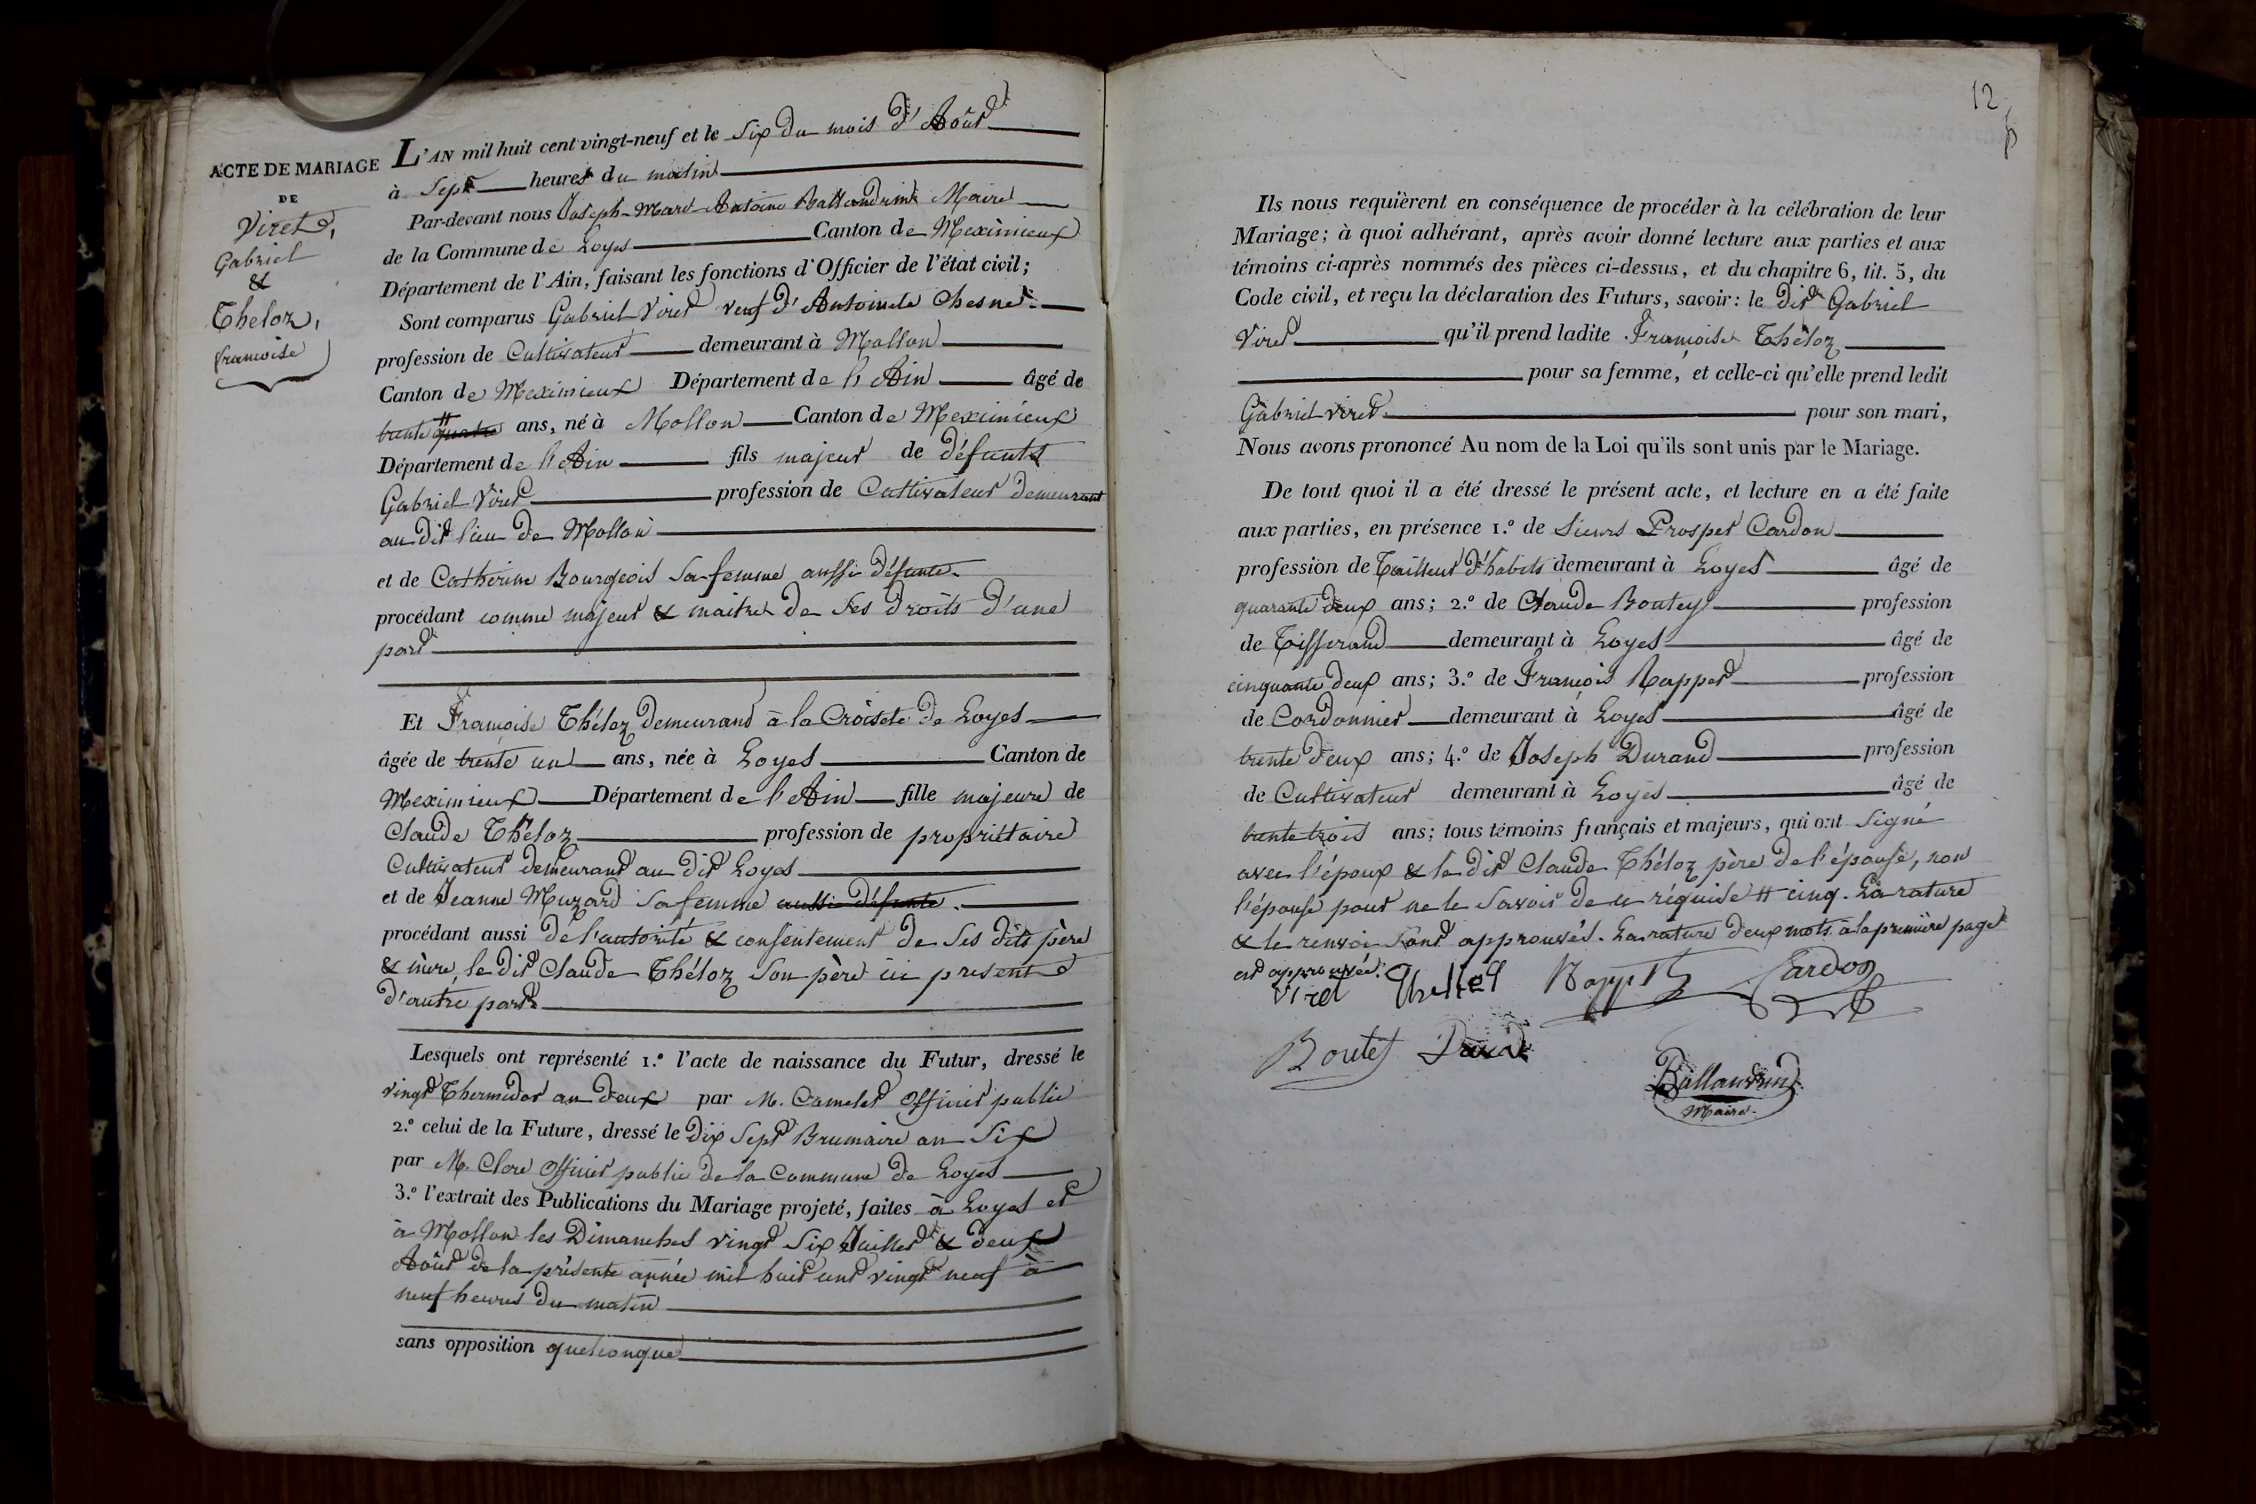 ACTE DE MARIAGE
DE
Viret,
Gabriel
&
Theloz,
francoise
L'AN mil huit cent vingt-neuf et le Six du mois d'Août
à Sept heures du matin
Par-devant nous Joseph-Marc-Antoine Ballandrin Maire
de la Commune de Loyes Canton de Meximieux
Département de l'Ain, faisant les fonctions d'Officier de l'état civil;
Sont comparus Gabriel Viret veuf d'Antoinette Chesne
profession de Cultivateur demeurant à Mollon
Canton de Meximieux Département de l'Ain âgé de
trente quatre # ans, né à Mollon Canton de Meximieux
Département de l'Ain fils majeur de défunts
Gabriel Viret profession de Cultivateur demeurant
au dit lieu de Mollon
et de Catherine Bourgeois Sa femme aussi défunte.
procédant comme majeur & maitre de Ses droits d'une
part
Et Françoise Théloz demeurant à la Croisete de Loyes
âgée de trente un ans, née à Loyes Canton de
Meximieux Département de l'Ain fille majeure de
Claude Théloz profession de propriétaire
Cultivateur demeurant au dit Loyes
et de Jeanne Muzard Sa femme aussi défunte.
procédant aussi de l'autorité & consentement de Ses dits père
& mère, le dit Claude Théloz Son père ici present
d'autre part
Lesquels ont représenté 1.º l'acte de naissance du Futur, dressé le
vingt Thermidor an deux par M. Camelet Officier public
2.º celui de la Future, dressé le dix Sept Brumaire an Six
par M. Clere Officier public de la Commune de Loyes
3.º l'extrait des Publications du Mariage projeté, faites à Loyes et
à Mollon les Dimanches vingt Six Juillet & deux
Août de la présente année mil huit cent vingt neuf à
neuf heures du matin
sans opposition quelconque
12
Ils nous requièrent en conséquence de procéder à la célébration de leur
Mariage; à quoi adhérant, après avoir donné lecture aux parties et aux
témoins ci-après nommés des pièces ci-dessus, et du chapitre 6, tit. 5, du
Code civil, et reçu la déclaration des Futurs, savoir: le dit Gabriel
Viret qu'il prend ladite Françoise Théloz
pour sa femme, et celle-ci qu'elle prend ledit
Gabriel viret pour son mari,
Nous avons prononcé Au nom de la Loi qu'ils sont unis par le Mariage.
De tout quoi il a été dressé le présent acte, et lecture en a été faite
aux parties, en présence 1.º de Sieurs Prosper Cardon
profession de Tailleur d'habits demeurant à Loyes âgé de
quarante deux ans; 2.º de Claude Boutey profession
de Tisserand demeurant à Loyes âgé de
cinquante deux ans; 3.º de François Rappet profession
de Cordonnier demeurant à Loyes âgé de
trente deux ans; 4.º de Joseph Durand profession
de Cultivateur demeurant à Loyes âgé de
trente trois ans; tous témoins français et majeurs, qui ont Signé
avec l'époux & le dit Claude Théloz père de l'épouse, non
l'épouse pour ne le Savoir de ce réquise # cinq. La rature
& le renvoi Sont approuvés. La rature deux mots à la première page
est approuvée.
Viret Rappet Cardon
Boutey
Ballandrin
Maire.